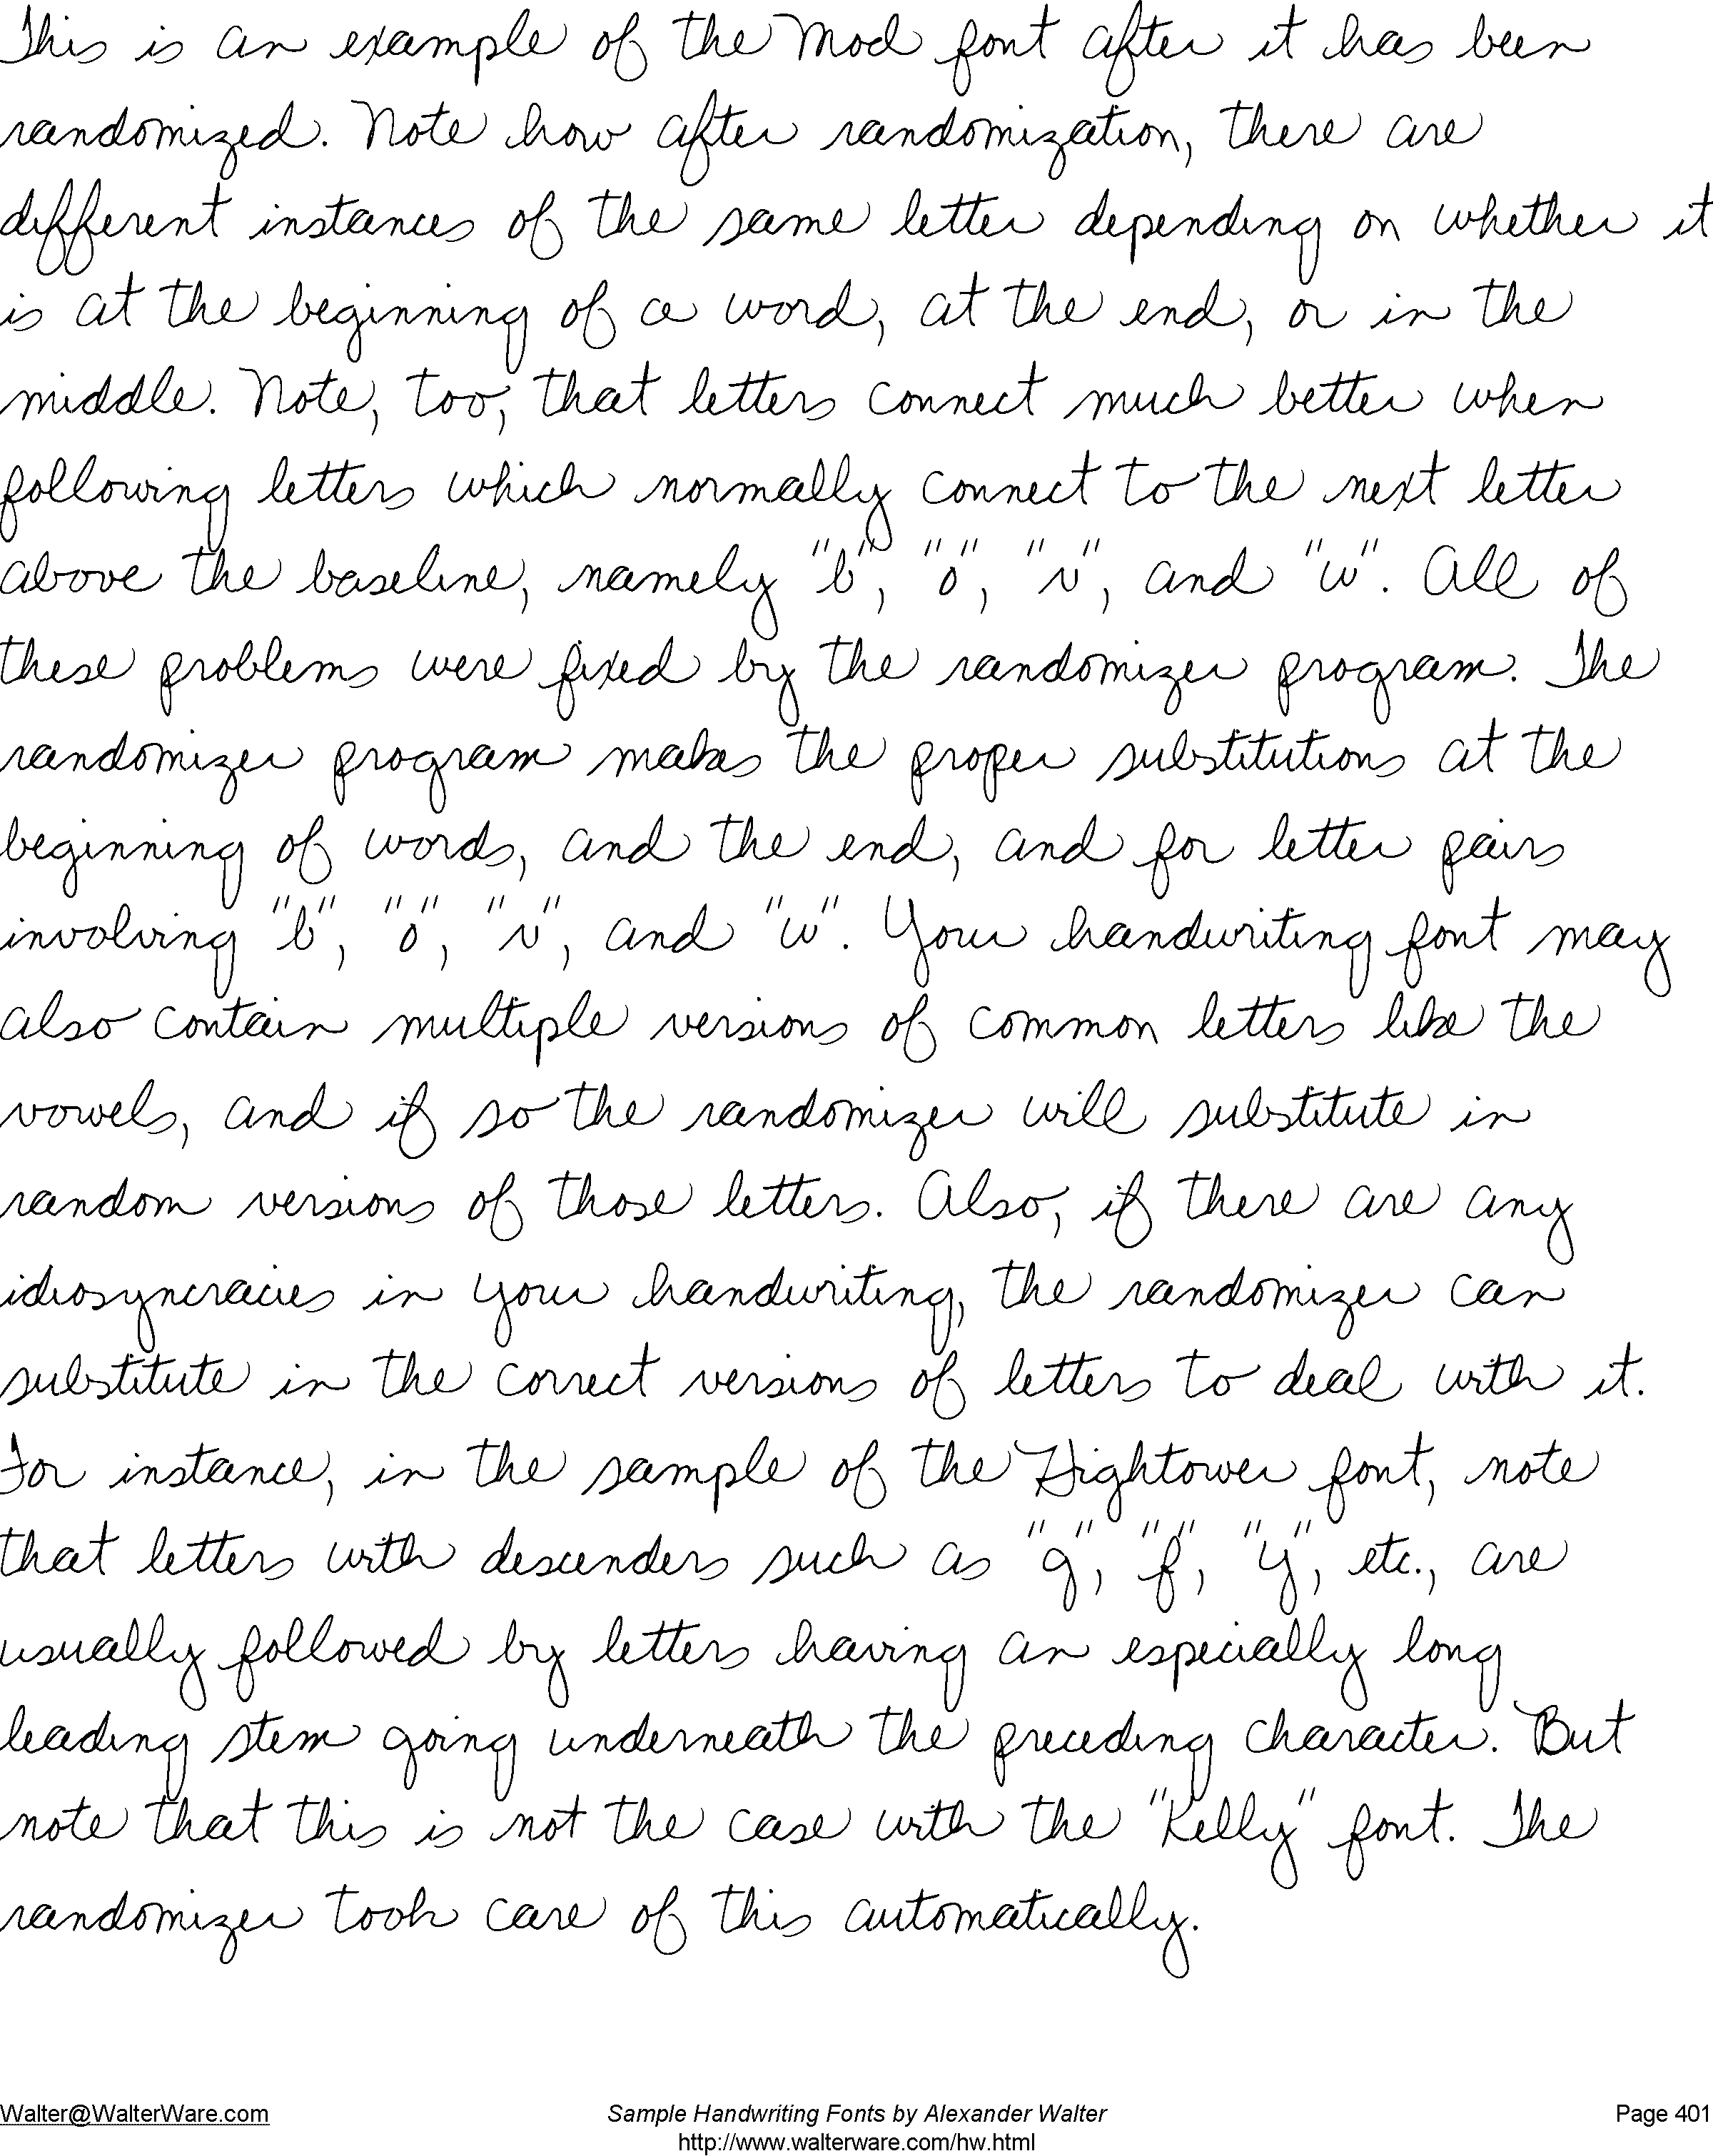 This is an example of the Mod font after it has been
randomized. Note how after randomization, there are
different instances of the same letter depending on whether it
is at the beginning of a word, at the end, or in the
middle. Note, too, that letters connect much better when
following letters which normally connect to the next letter
above the baseline, namely "b", "o", "v", and "w". All of
these problems were fixed by the randomizer program. The
randomizer program makes the proper substitutions at the
beginning of words, and the end, and for letter pairs
involving "b", "o", "v", and "w". Your handwriting font may
also contain multiple versions of common letters like the
vowels, and if so the randomizer will substitute in
random versions of those letters. Also, if there are any
idiosyncracies in your handwriting, the randomizer can
substitute in the correct versions of letters to deal with it.
For instance, in the sample of the Hightower font, note
that letters with descenders such as "g", "f", "y", etc., are
usually followed by letters having an especially long
leading stem going underneath the preceding character. But
note that this is not the case with the "Kelly" font. The
randomizer took care of this automatically.
Walter@WalterWare.com Sample Handwriting Fonts by Alexander Walter Page 401
http://www.walterware.com/hw.html